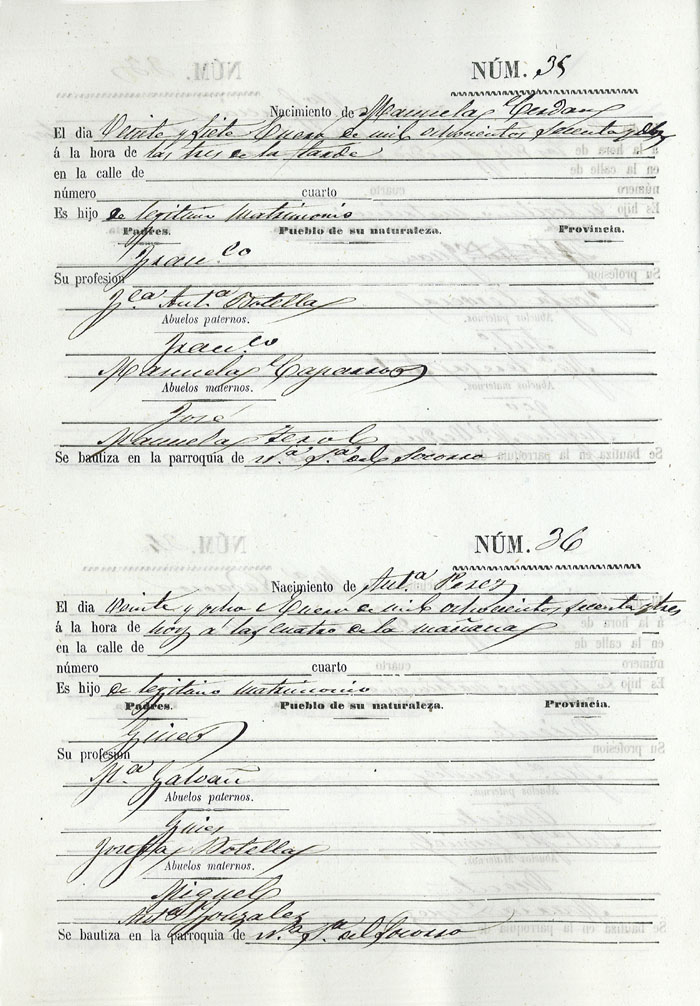 NÚM. 35
Nacimiento de Manuela Cerdan
El dia Veinte y siete Enero de mil ochocientos sesenta y
á la hora de las tres de la tarde
en la calle de
número cuarto
Es hijo de legitimo matrimonio
Padres. Pueblo de su naturaleza. Provincia.
Fran.co
Su profesion
F.ca Ant.a Botella
Abuelos paternos.
Fran.co
Manuela
Abuelos maternos.
José
Manuela Ferol
Se bautiza en la parroquia de N.a S.a del Socorro
NÚM. 36
Nacimiento de Ant.a Perez
El dia Veinte y ocho Enero de mil ochocientos sesenta y tres
á la hora de hoy á las cuatro de la mañana
en la calle de
número cuarto
Es hijo de legitimo matrimonio
Padres. Pueblo de su naturaleza. Provincia.
Gines
Su profesion
M.a Galvañ
Abuelos paternos.
Gines
Josefa Botella
Abuelos maternos.
Miguel
Ant.a Gonzalez
Se bautiza en la parroquia de N.a S.a del Socorro